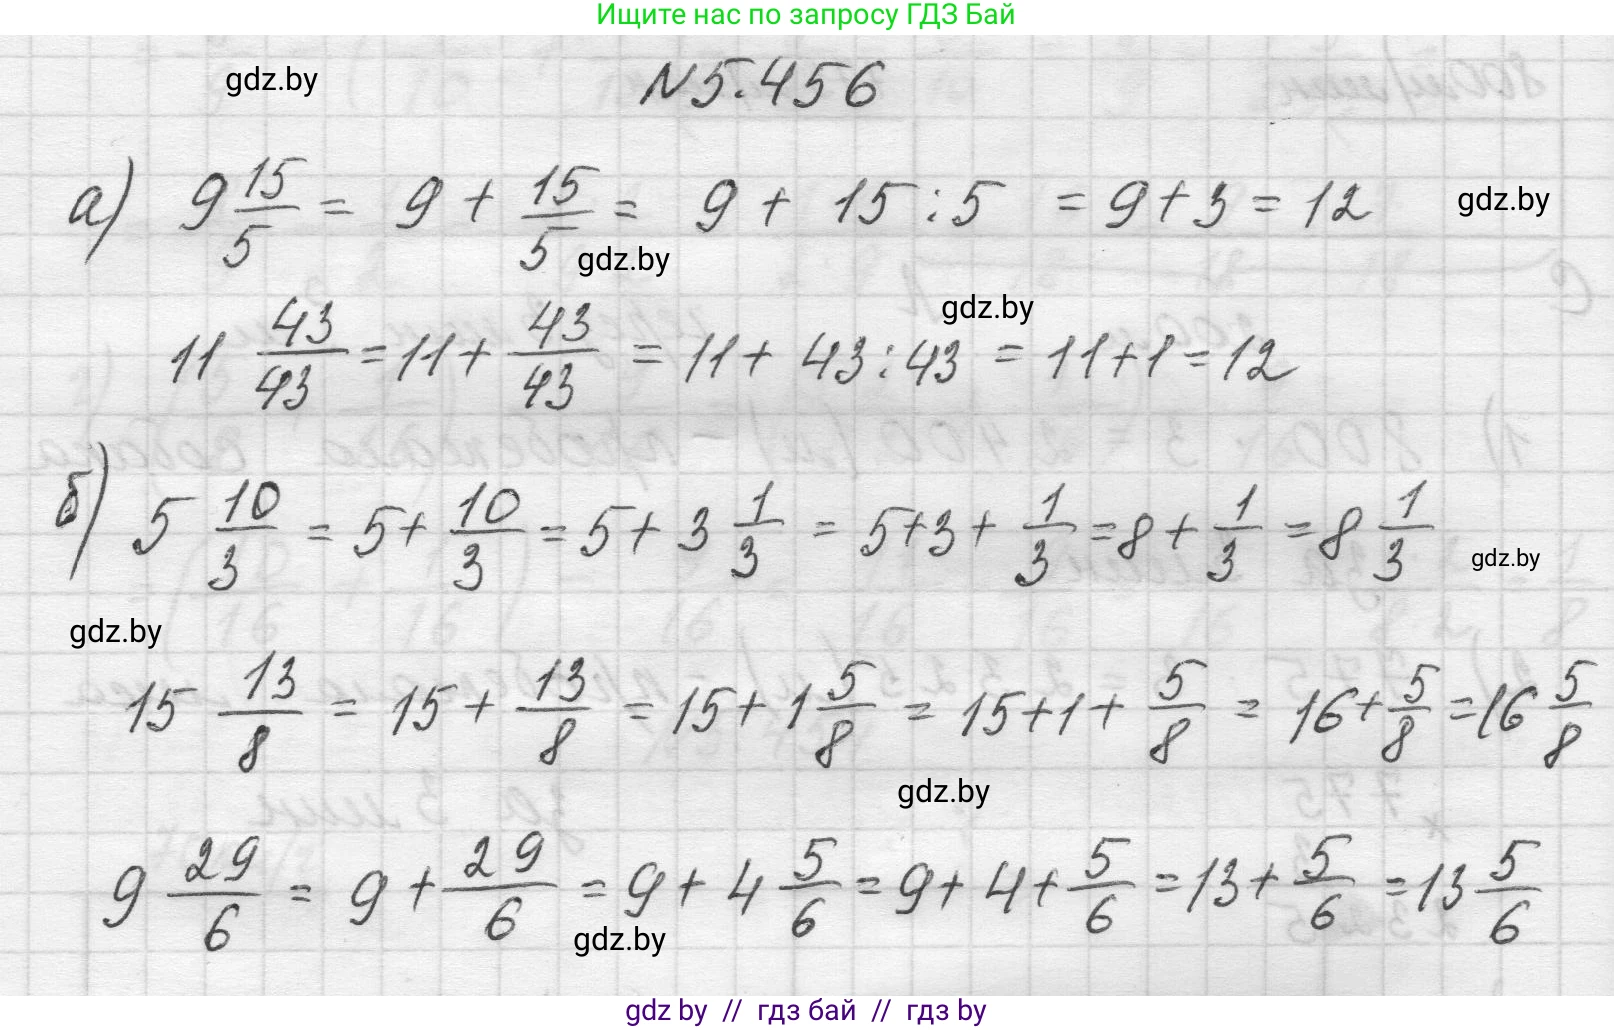 Ищите нас по запросу ГДЗ Бай
gdz.by
N5.456
а) 9 15/5 = 9 + 15/5 = 9 + 15 : 5 = 9 + 3 = 12
gdz.by
gdz.by
gdz.by
11 43/43 = 11 + 43/43 = 11 + 43 : 43 = 11 + 1 = 12
б) 5 10/3 = 5 + 10/3 = 5 + 3 1/3 = 5 + 3 + 1/3 = 8 + 1/3 = 8 1/3
gdz.by
gdz.by
15 13/8 = 15 + 13/8 = 15 + 1 5/8 = 15 + 1 + 5/8 = 16 + 5/8 = 16 5/8
gdz.by
9 29/6 = 9 + 29/6 = 9 + 4 5/6 = 9 + 4 + 5/6 = 13 + 5/6 = 13 5/6
gdz.by
gdz by // гдз бай // гдз by